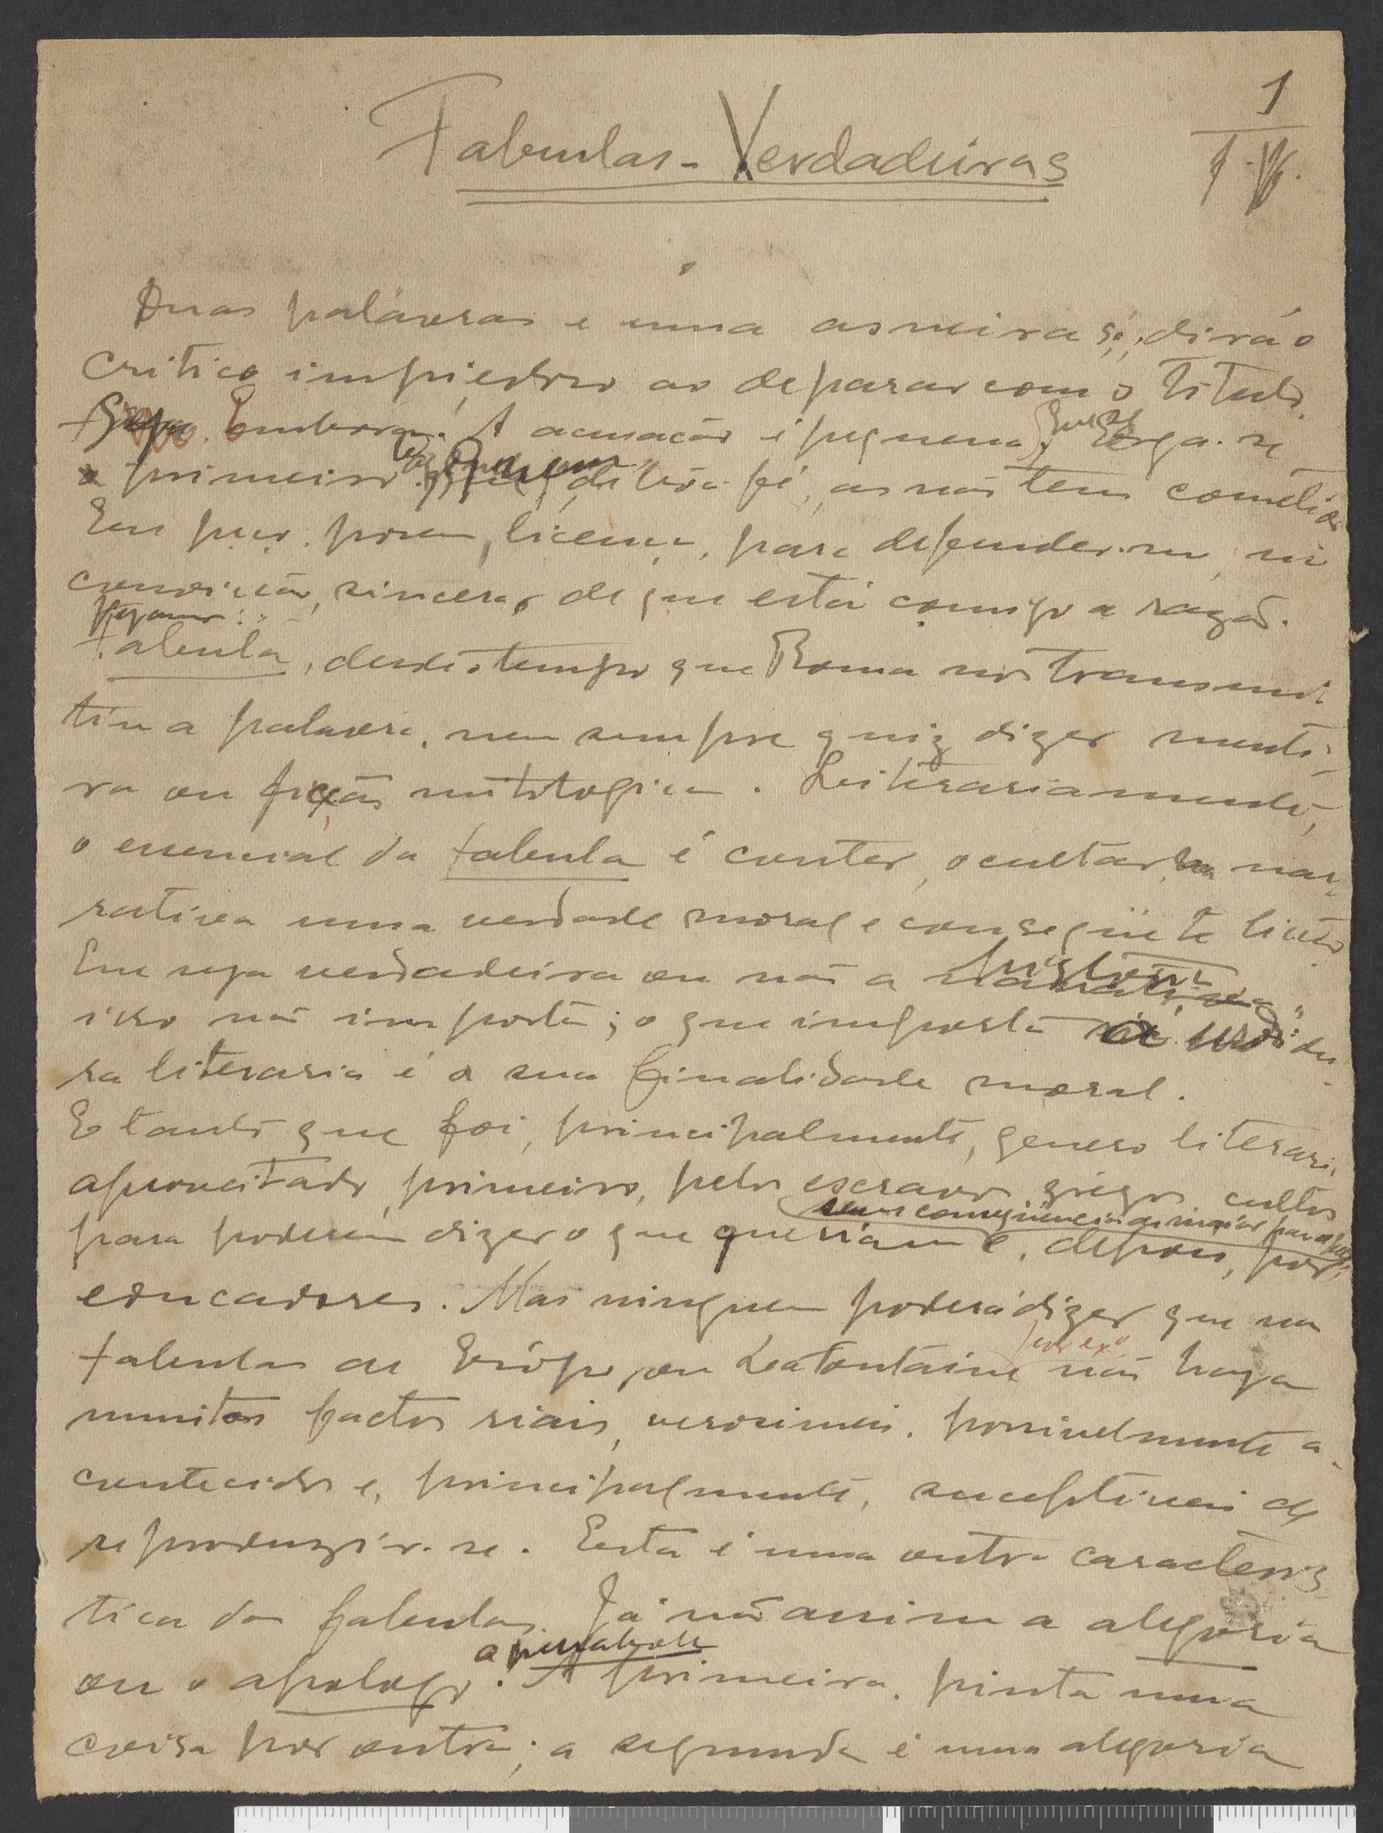 1
Fabulas-Verdadeiras
Duas palavras e uma asneira só, dirá o
critico impiedoso ao deparar com o titulo.
Embora! A acusação é pequena. Erga-se
o primeiro de bôa fé, as não tem cometido
Eu peço, porem, licença, para defender-me, na
convicção, sincera, de que está comigo a razão.
Fabula, desde o tempo que Roma nos transmi
tiu a palavra, nem sempre quiz dizer menti-
ra ou ficção mitologica. Leiterariamente,
o essencial da fabula é conter, ocultar na nar-
rativa uma verdade moral e conseqüente lição
Que seja verdadeira ou não a historia
isso não importa; o que importa á urdidu-
ra literaria é a sua finalidade moral.
E tanto que foi, principalmente, genero literario
aproveitado, primeiro, pelos escravos grégos cultos
sem conseqüencia de maior para
para poderem dizer o que queriam e, depois, por
educadores. Mas ninguem poderá dizer que na
por exº
fabulas de Esópo, ou Lafontaine não haja
muitos factos riais, verosimeis, possivelmente a-
contecidos e, principalmente, susceptiveis de
reproduzir-se. Esta é uma outra caracteris
tica da fabula. Já não assim a alegoria
a parabole
ou o apologo. A primeira, pinta uma
coisa por outra; a segunda é uma alegoria